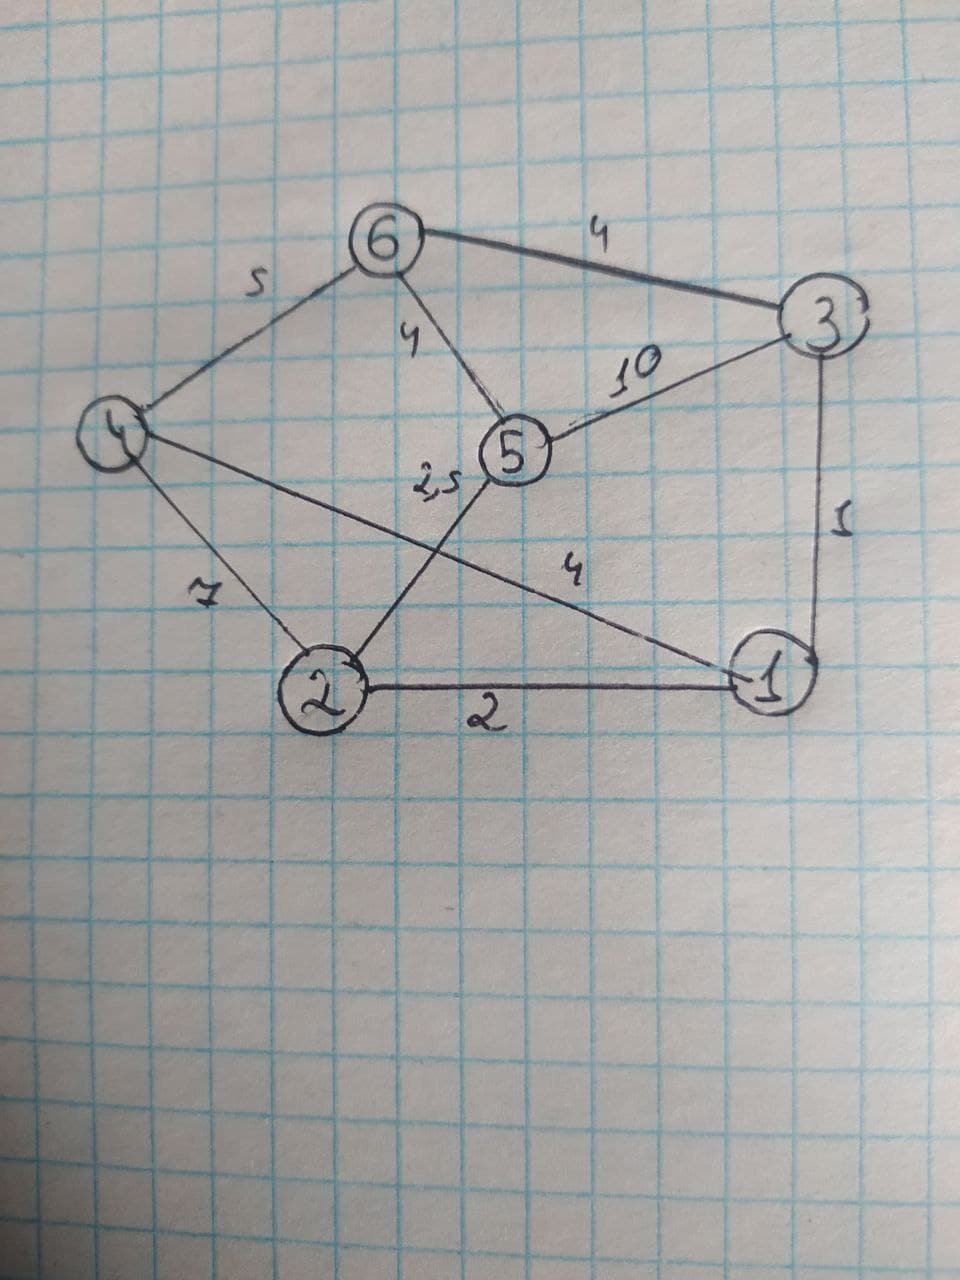 6
4
5
3
4
10
4
5
2,5
1
4
7
2
1
2